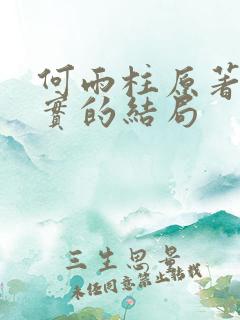 何雨柱原著
實的結局
三生思景
未经同意禁止转载